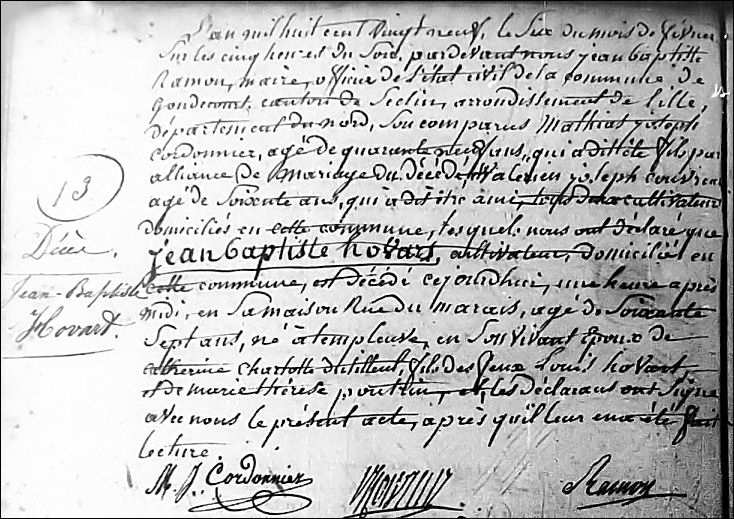 L'an mil huit cent vingt neuf, le six du mois de février
sur les cinq heures du soir, pardevant nous jean baptiste
Ramon, maire, officier de l'état civil de la commune de
Gondecourt, canton de Seclin, arrondissement de lille,
département du nord, son comparus Mathias joseph
Cordonnier, agé de quarante neuf ans, qui a dit être fils par
alliance de mariage du décédé, valemen joseph
agé de Soixante ans, qui a dit être ami, tous deux cultivateur
domiciliés en cette commune, lesquels nous ont déclaré que
jean baptiste hovart, cultivateur, domicilié en
cette commune, est décédé cejourdhui, une heure après
midi, en sa maison Rue du marais, agé de Soixante
Sept ans, né à templeuve, en son vivant Epoux de
catherine Charlotte dutilleul, fils des feux Louis hovart
et de marie thérèse, et, les Déclarans ont Signé
avec nous le présent acte, après qu'il leur en a été fait
lecture.
13
Décès.
Jean-Baptiste
Hovart.
M. J. Cordonnier
Ramon